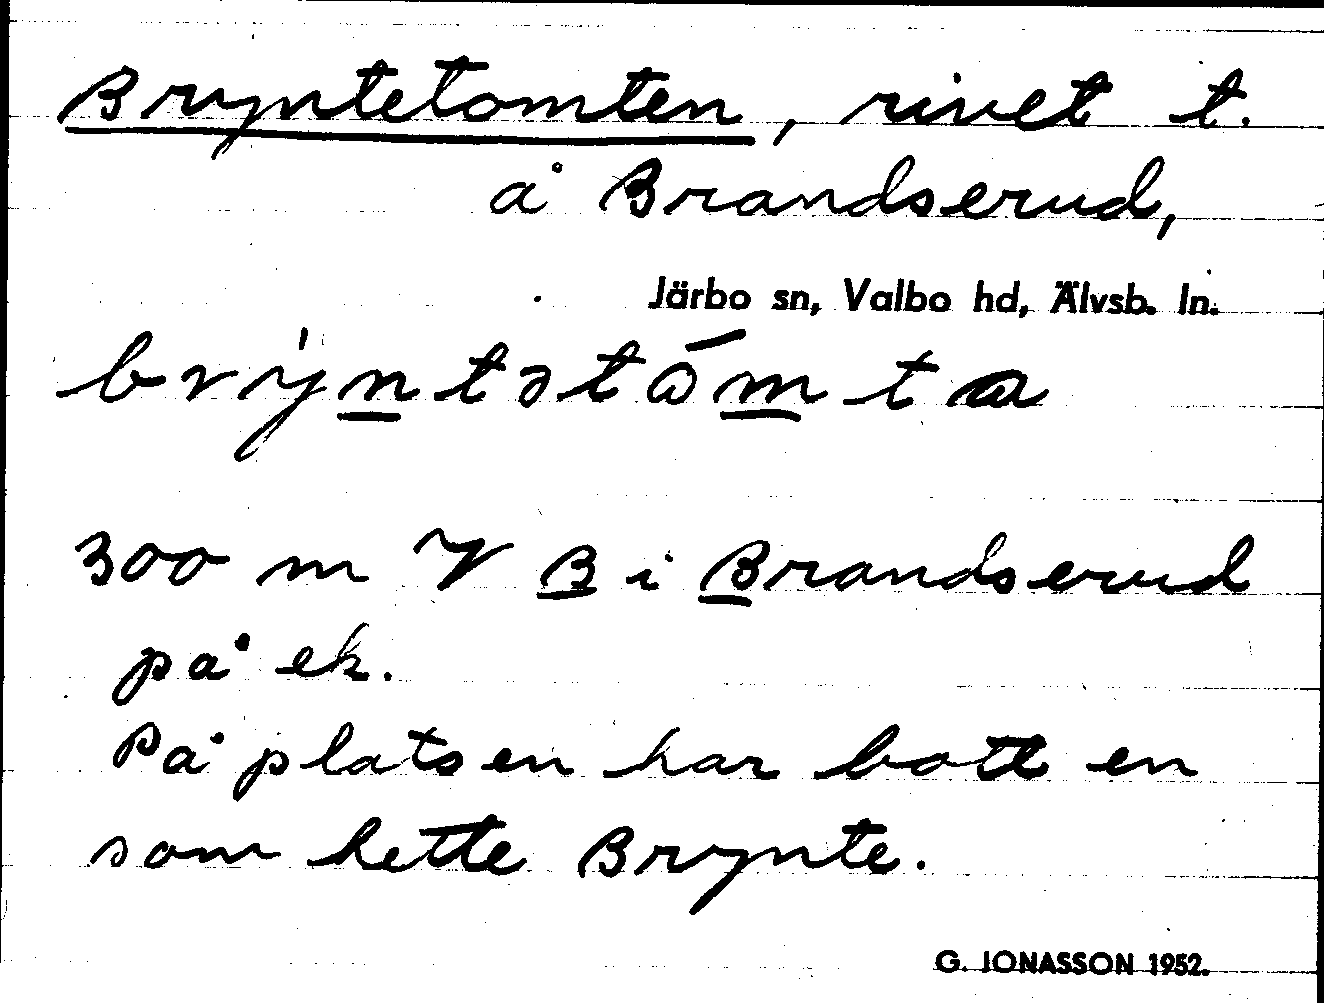 Bryntetomten, rivet t.
å Brandserud,
Järbo sn, Valbo hd, Älvsb. ln.
brýn̲tətåm̲ta
300 m V B i Brandserud
på ek.
På platsen har bott en
som hette Brynte.
G. JONASSON 1952.